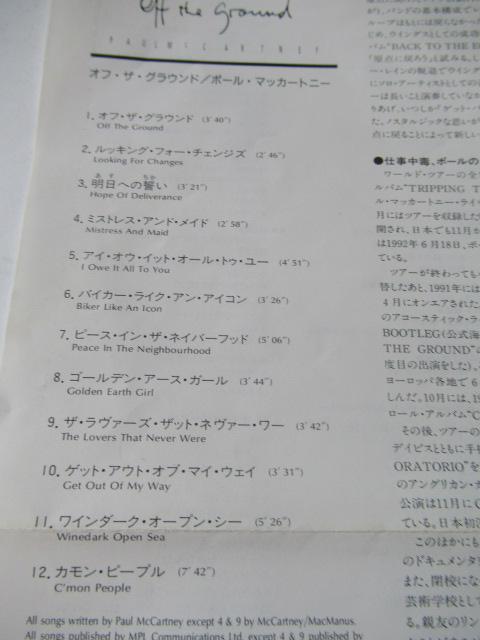 Off the Ground
PAUL McCARTNEY
オフ・ザ・グラウンド/ポール・マッカートニー
1. オフ・ザ・グラウンド (3′40″)
Off The Ground
2. ルッキング・フォー・チェンジズ (2′46″)
Looking For Changes
3. 明日への誓い (3′21″)
Hope Of Deliverance
4. ミストレス・アンド・メイド (2′58″)
Mistress And Maid
5. アイ・オウ・イット・オール・トゥ・ユー (4′51″)
I Owe It All To You
6. バイカー・ライク・アン・アイコン (3′26″)
Biker Like An Icon
7. ピース・イン・ザ・ネイバーフッド (5′06″)
Peace In The Neighbourhood
8. ゴールデン・アース・ガール (3′44″)
Golden Earth Girl
9. ザ・ラヴァーズ・ザット・ネヴァー・ワー (3′42″)
The Lovers That Never Were
10. ゲット・アウト・オブ・マイ・ウェイ (3′31″)
Get Out Of My Way
11. ワインダーク・オープン・シー (5′26″)
Winedark Open Sea
12. カモン・ピープル (7′42″)
C'mon People
All songs written by Paul McCartney except 4 & 9 by McCartney/MacManus.
All songs published by MPL Communications Ltd. except 4 & 9 published by
が)、バンドの基本構成で
ループはもとには戻らなかっ
じめ、ウイングスとしての成功
バム"BACK TO THE E
「原点に戻ろう」と試みる。し
ー・レインの脱退でウイング
にソロ・アーティストとしての
ーは長いこと演奏していなか
りあげ、いつしか「ゲット・バ
た。ノスタルジックな思いが
点に戻ることによって新しい
●仕事中毒、ポールの
ワールド・ツアーの全
ルバム"TRIPPING T
ル・マッカートニー・ライ
月にはツアーを収録した
開され、日本でも11月か
は1992年6月18日、ポー
ている。
ツアーが終わっても
替したあと、1991年には
4月にオンエアされた
のアコースティック・ラ
BOOTLEG(公式海
THE GROUND"の
度目の出演をした)。
ヨーロッパ各地で6
しんだ。10月には、19
ロール・アルバム"C
その後、ツアーの
デイビスとともに手
ORATORIO"を
のアングリカン・カ
公演は11月にC
ている。日本初演
このほかにも
のドキュメンタ
また、閉校にな
芸術学校として
る。親友のリン